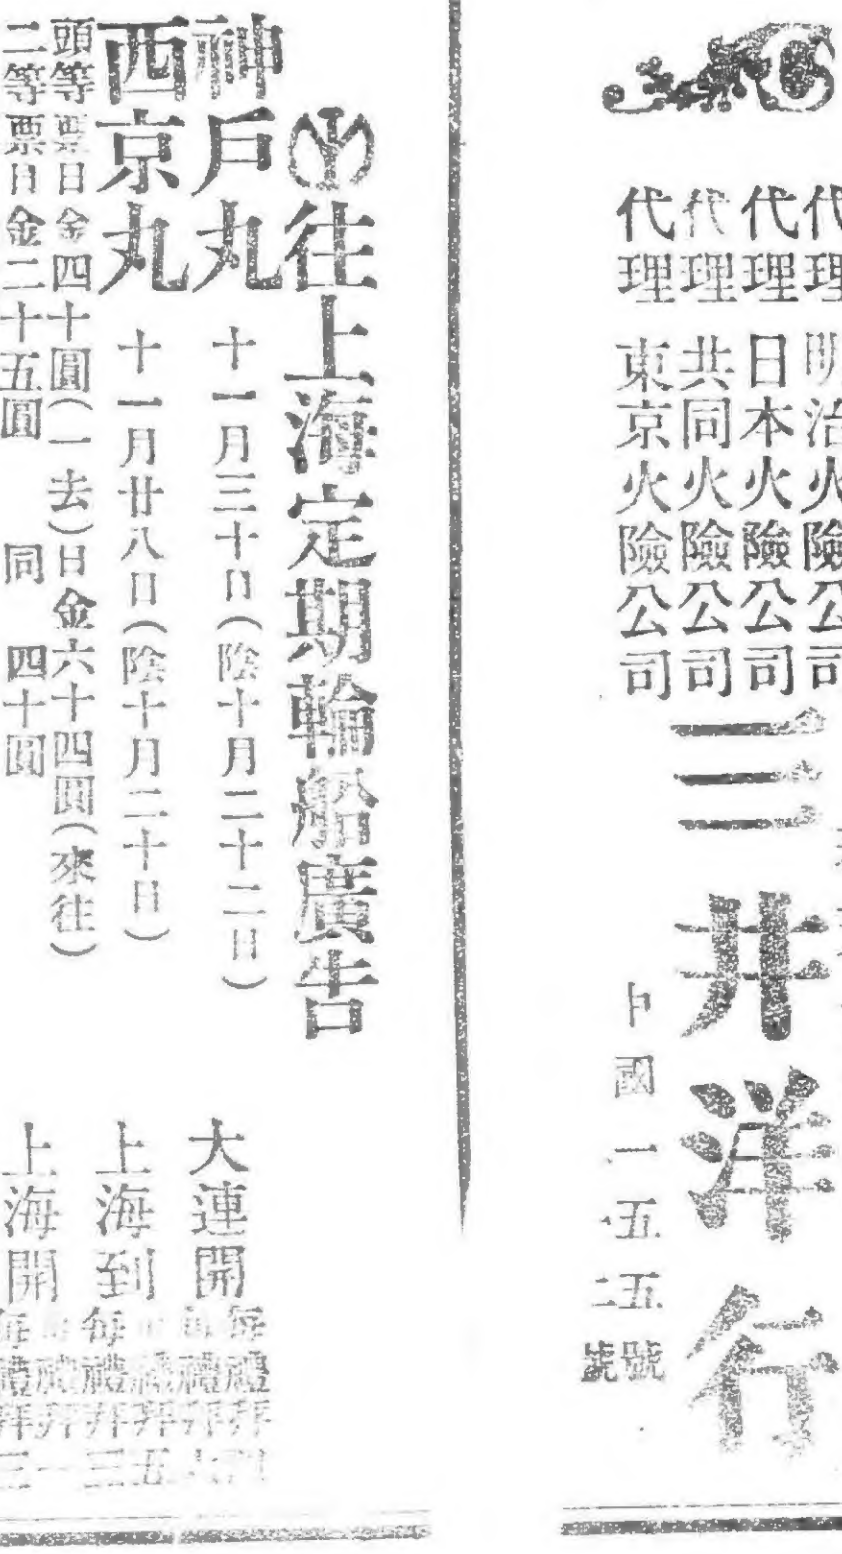 代理 明治火險公司
代理 日本火險公司
代理 共同火險公司
代理 東京火險公司
三井洋行
國一五五號
二號
往上海定期輪船廣告
神戶丸 十一月三十日(陰十月二十二日)
西京丸 十一月廿八日(陰十月二十日)
頭等票日金四十圓(一去)日金六十四圓(來往)
二等票日金二十五圓 同 四十圓
大連開 每禮拜
禮拜
上海到 禮拜五
每禮拜三
上海開 禮拜一
每禮拜三